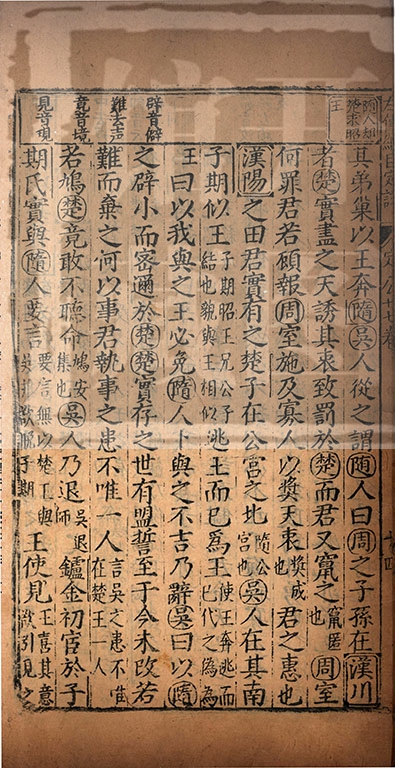 隨人却楚求昭王
其弟巢以王奔隨吳人從之謂隨人曰周之子孫在漢川
者楚實盡之天誘其衷致罰於楚而君又竄之竄匿也周室
何罪君若顧報周室施及寡人以獎天衷獎成也君之惠也
漢陽之田君實有之楚子在公宮之北隨公宮也吳人在其南
子期似王子期昭王兄公子結也貌與王相似逃王而已為王使王奔逃而已代之為為
王曰以我與之王必免隨人卜與之不吉乃辭吳曰以隨
辟音僻
之辟小而密邇於楚楚實存之世有盟誓至于今未改若
難去声
難而棄之何以事君執事之患不唯一人言吳之患不惟在楚王一人
竟音境
若鳩楚竟敢不聽命鳩安集也吳人乃退吳退師鑪金初官於子
見音現
期氏實與隨人要言要言無以楚王與吳并欲脫子期王使見王喜其意欲引見之